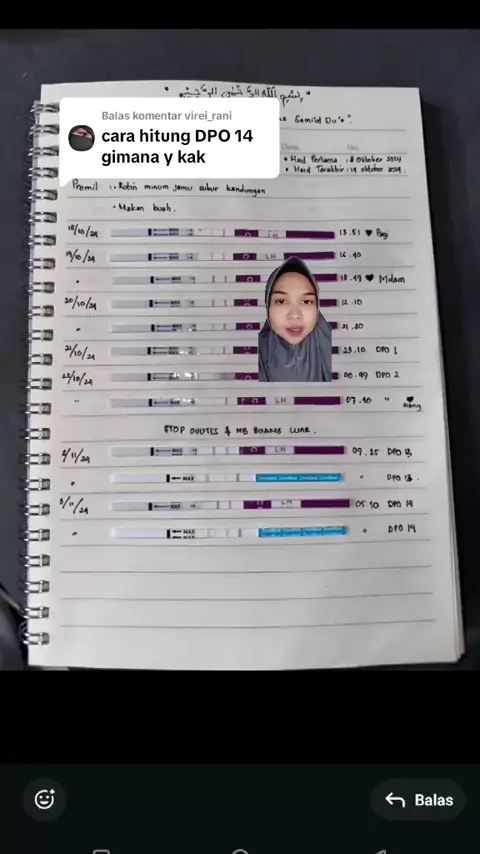 بسم الله الرحمن الرحيم
Balas komentar virei_rani
cara hitung DPO 14
gimana y kak
• Haid Pertama : 8 Oktober 2024
• Haid Terakhir : 14 Oktober 2024.
Promil : • Rutin minum jamu subur kandungan
• Makan buah.
18/10/24 LH 13.51 ♥ Pagi
19/10/24 LH 16.40
" 18.49 ♥ Malam
20/10/24 12.10
" 21.20
21/10/24 23.10 DPO 1
22/10/24 00.49 DPO 2
" LH 07.40 " ♥ Siang
STOP OVUTES & HB BUANG LUAR.
2/11/24 LH 09.25 DPO 13
" MAX " DPO 13
3/11/24 LH 05.30 DPO 14
" MAX " DPO 14
Balas